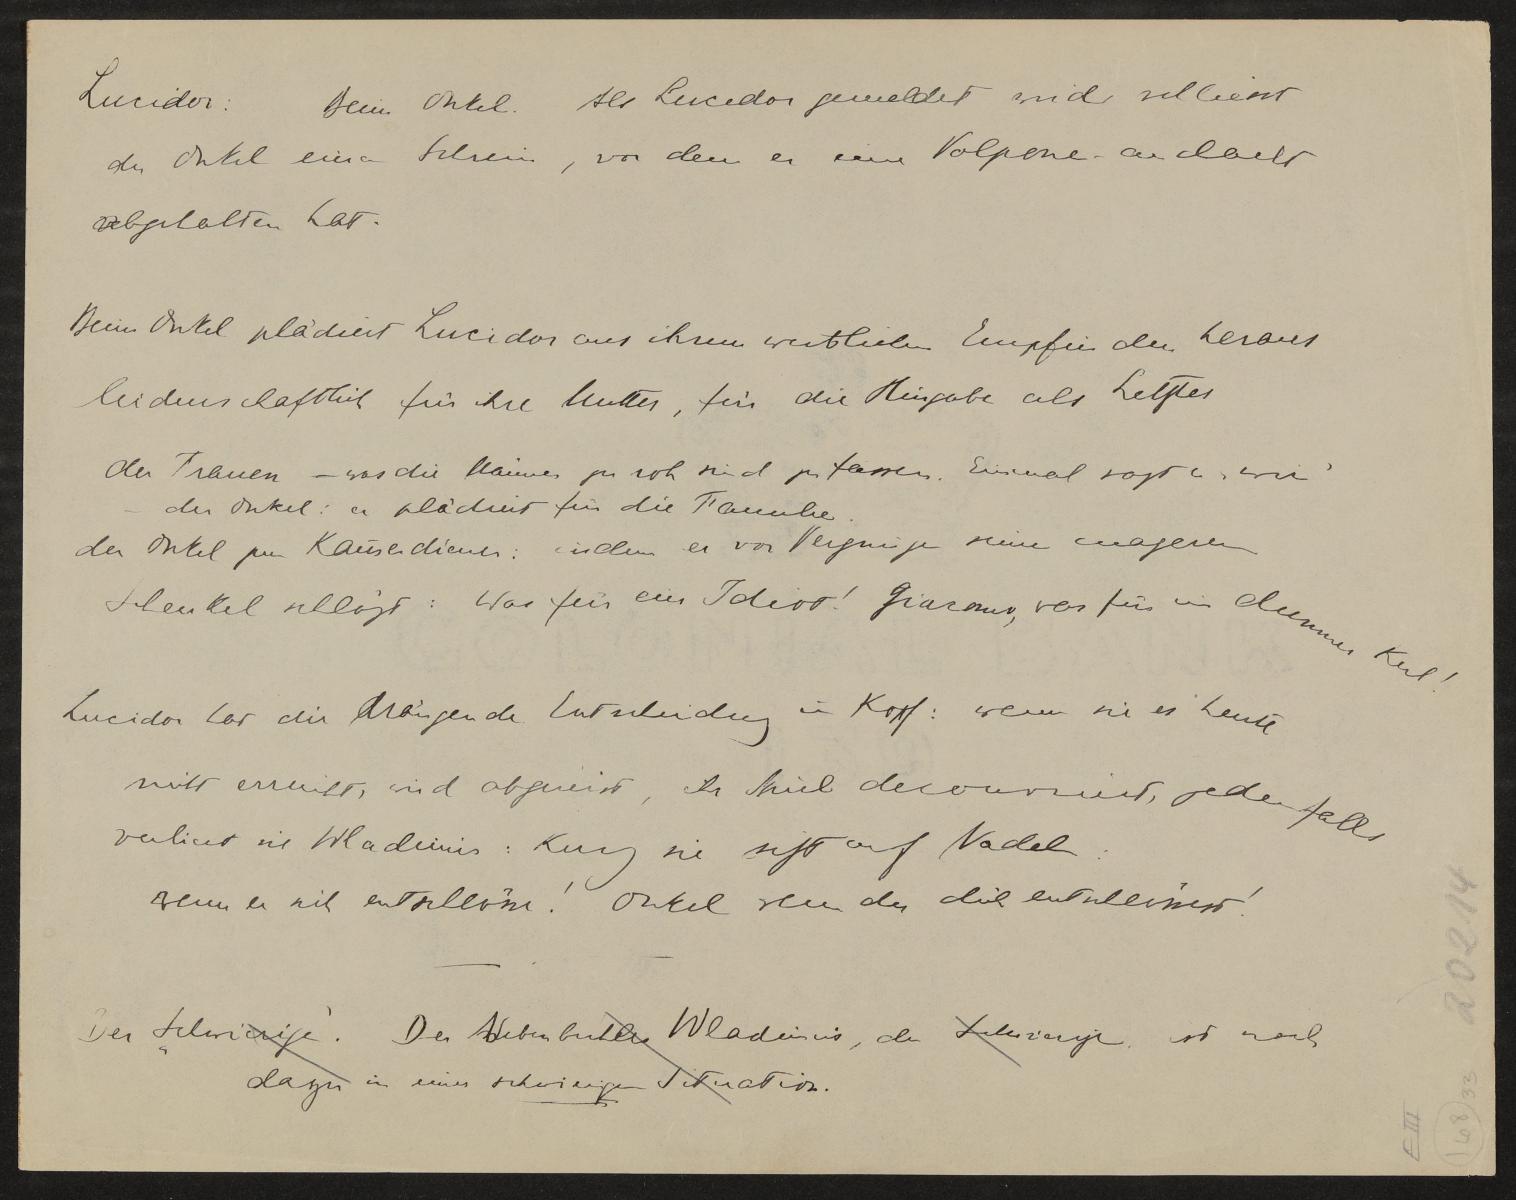 Lucidor: Beim Onkel. Als Lucidor gemeldet wird schliesst
der Onkel einen Schrein, vor dem er eine Volpone-andacht
abgehalten hat.
Beim Onkel plädiert Lucidor aus ihrem weiblichen Empfinden heraus
leidenschaftlich für ihre Mutter, für die Hingabe als Letztes
der Frauen – was die Männer zu roh sind zu fassen. Einmal sagt er „wir“
– der Onkel: er plädiert für die Familie.
der Onkel zum Kammerdiener: indem er vor Vergnügen seine mageren
Schenkel schlägt: Was für ein Idiot! Giacomo, was für ein dummer Kerl!
Lucidor hat die drängende Entscheidung im Kopf: wenn sie es heute
nicht erreicht, wird abgereist, ihr Spiel decouvriert, jedenfalls
verliert sie Wladimir: Kurz sie sitzt auf Nadeln:
wenn er sich entschlösse! Onkel wenn du dich entschlössest!
Der „Schwierige“. Der Nebenbuhler Wladimirs, der Schwierige, ist noch
dazu in einer schwierigen Situation.
20214
E III
168
33